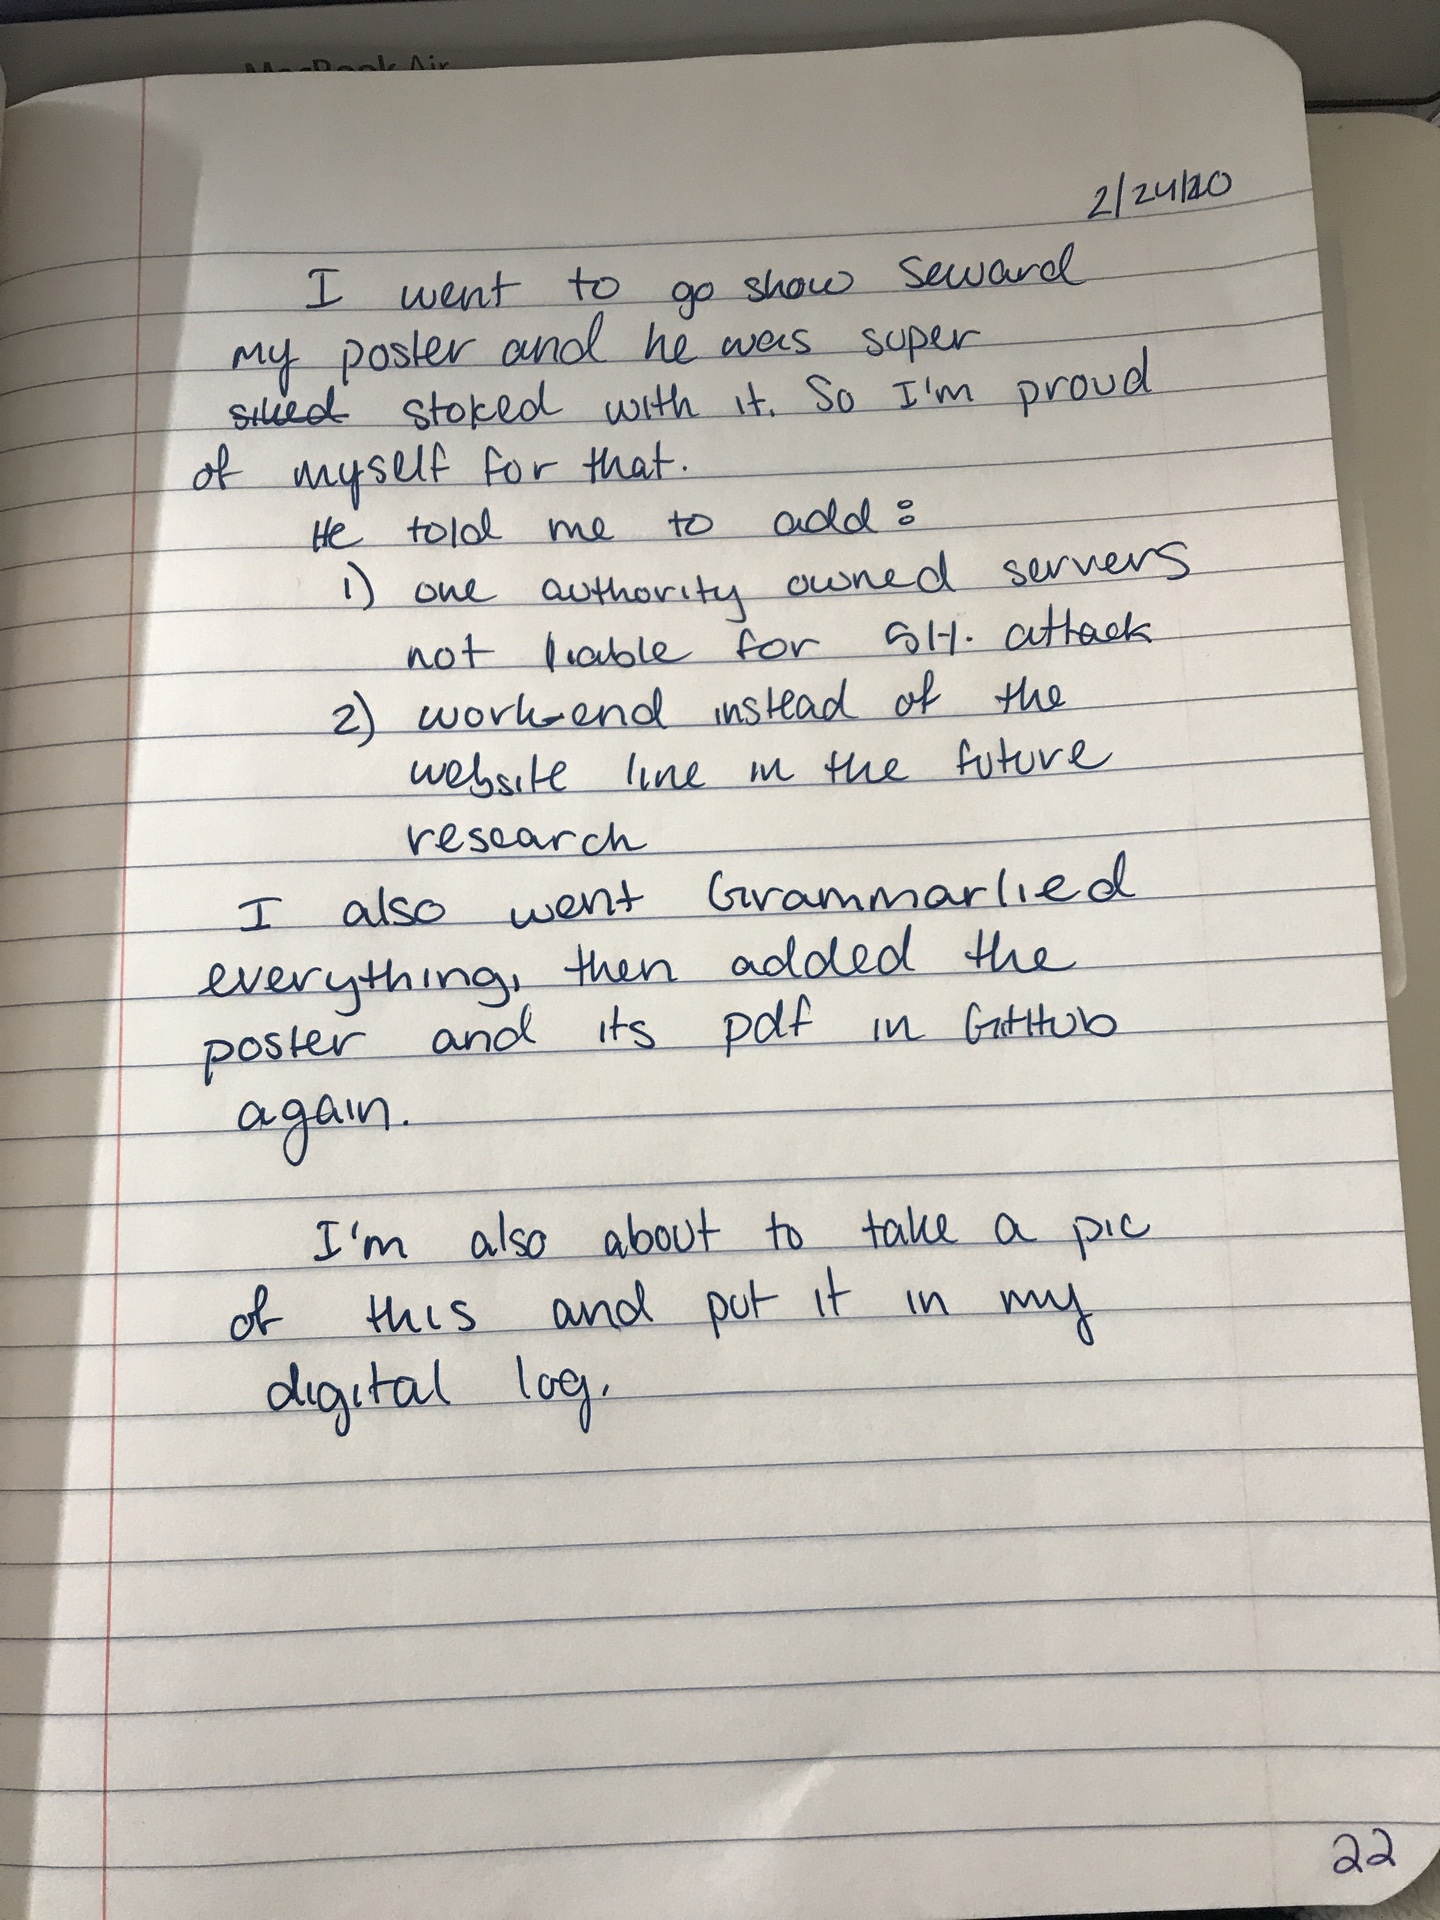 MacBook Air
2/24/20
I went to go show Seward
my poster and he was super
stoked with it. So I'm proud
of myself for that.
He told me to add:
1) one authority owned servers
not liable for 51%. attack
2) work-end instead of the
website line in the future
research
I also went Grammarlied
everything, then added the
poster and its pdf in GitHub
again.
I'm also about to take a pic
of this and put it in my
digital log.
22